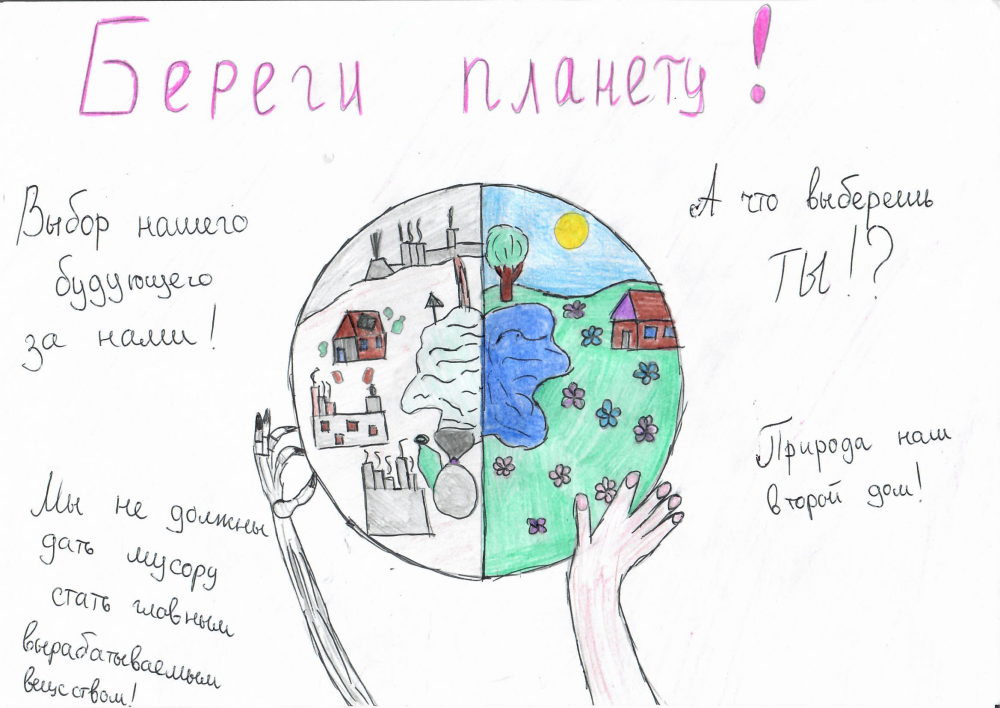 Береги планету!
Выбор нашего
будующего
за нами!
А что выберешь
ТЫ!?
Мы не должны
дать мусору
стать главным
вырабатываемым
веществом!
Природа наш
второй дом!